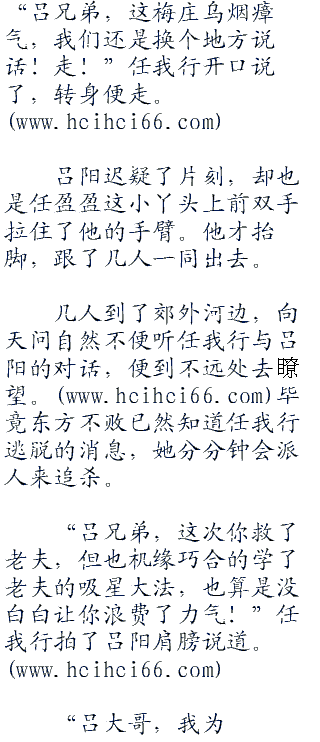 “吕兄弟，这梅庄乌烟瘴
气，我们还是换个地方说
话！走！”任我行开口说
了，转身便走。
(www.hcihci66.com)
吕阳迟疑了片刻，却也
是任盈盈这小丫头上前双手
拉住了他的手臂。他才抬
脚，跟了几人一同出去。
几人到了郊外河边，向
天问自然不便听任我行与吕
阳的对话，便到不远处去瞭
望。(www.hcihci66.com)毕
竟东方不败已然知道任我行
逃脱的消息，她分分钟会派
人来追杀。
“吕兄弟，这次你救了
老夫，但也机缘巧合的学了
老夫的吸星大法，也算是没
白白让你浪费了力气！”任
我行拍了吕阳肩膀说道。
(www.hcihci66.com)
“吕大哥，我为